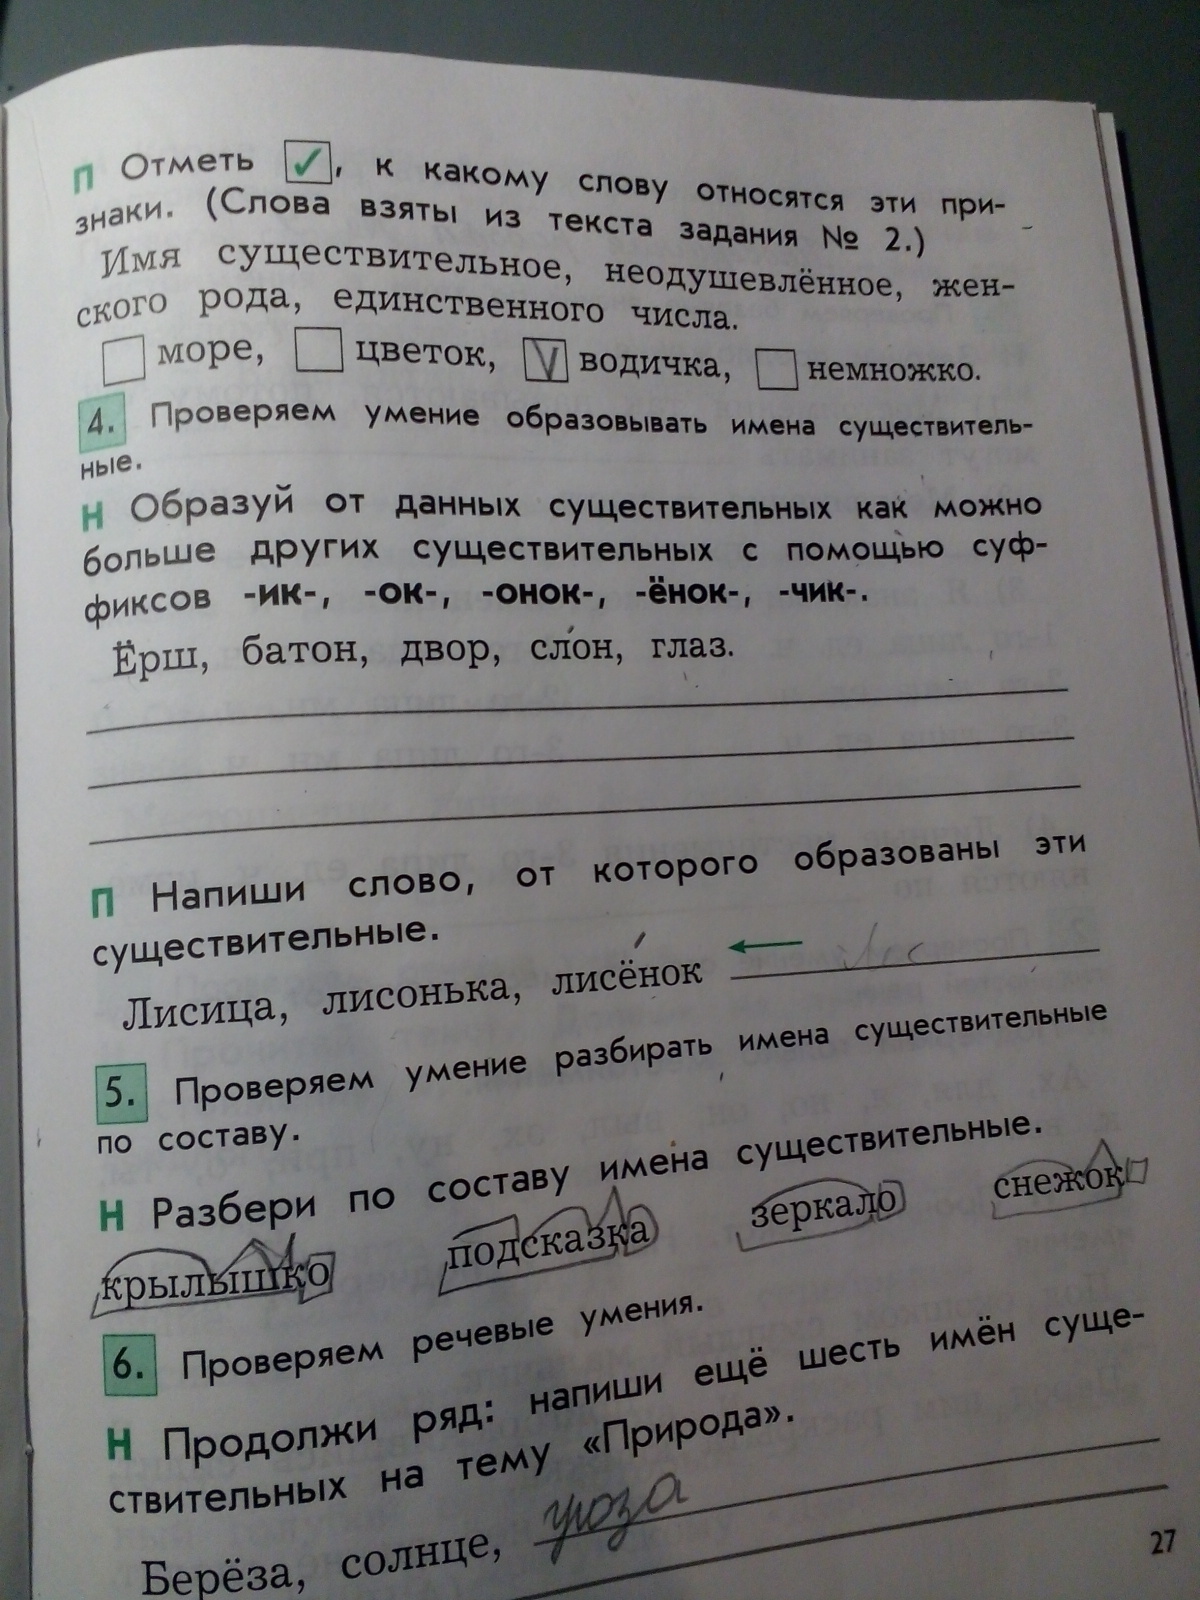 П Отметь ✓, к какому слову относятся эти при-
знаки. (Слова взяты из текста задания № 2.)
Имя существительное, неодушевлённое, жен-
ского рода, единственного числа.
море, цветок, V водичка, немножко.
4. Проверяем умение образовывать имена существитель-
ные.
Н Образуй от данных существительных как можно
больше других существительных с помощью суф-
фиксов -ик-, -ок-, -онок-, -ёнок-, -чик-.
Ёрш, батон, двор, слон, глаз.
П Напиши слово, от которого образованы эти
существительные.
Лисица, лисонька, лисёнок ← Лис
5. Проверяем умение разбирать имена существительные
по составу.
Н Разбери по составу имена существительные.
крылышко подсказка зеркало снежок
6. Проверяем речевые умения.
Н Продолжи ряд: напиши ещё шесть имён суще-
ствительных на тему «Природа».
Берёза, солнце,
27